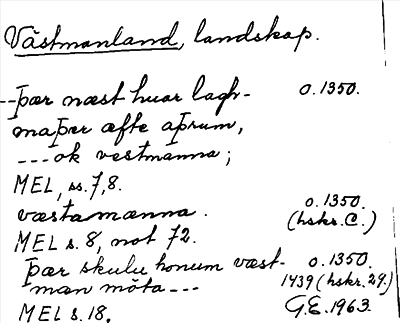 Västmanland, landskap.
---þær næst huar lagh- o.1350.
maþer æfte aþrum,
--- ok vestmanna;
MEL, ss. 7, 8.
væstamænna. o.1350.
(hskr. C.)
MEL s. 8, not 72.
þær skulu honum væst- o.1350.
mæn möta --- 1439 (hskr. 29.)
MEL s. 18. G.E. 1963.